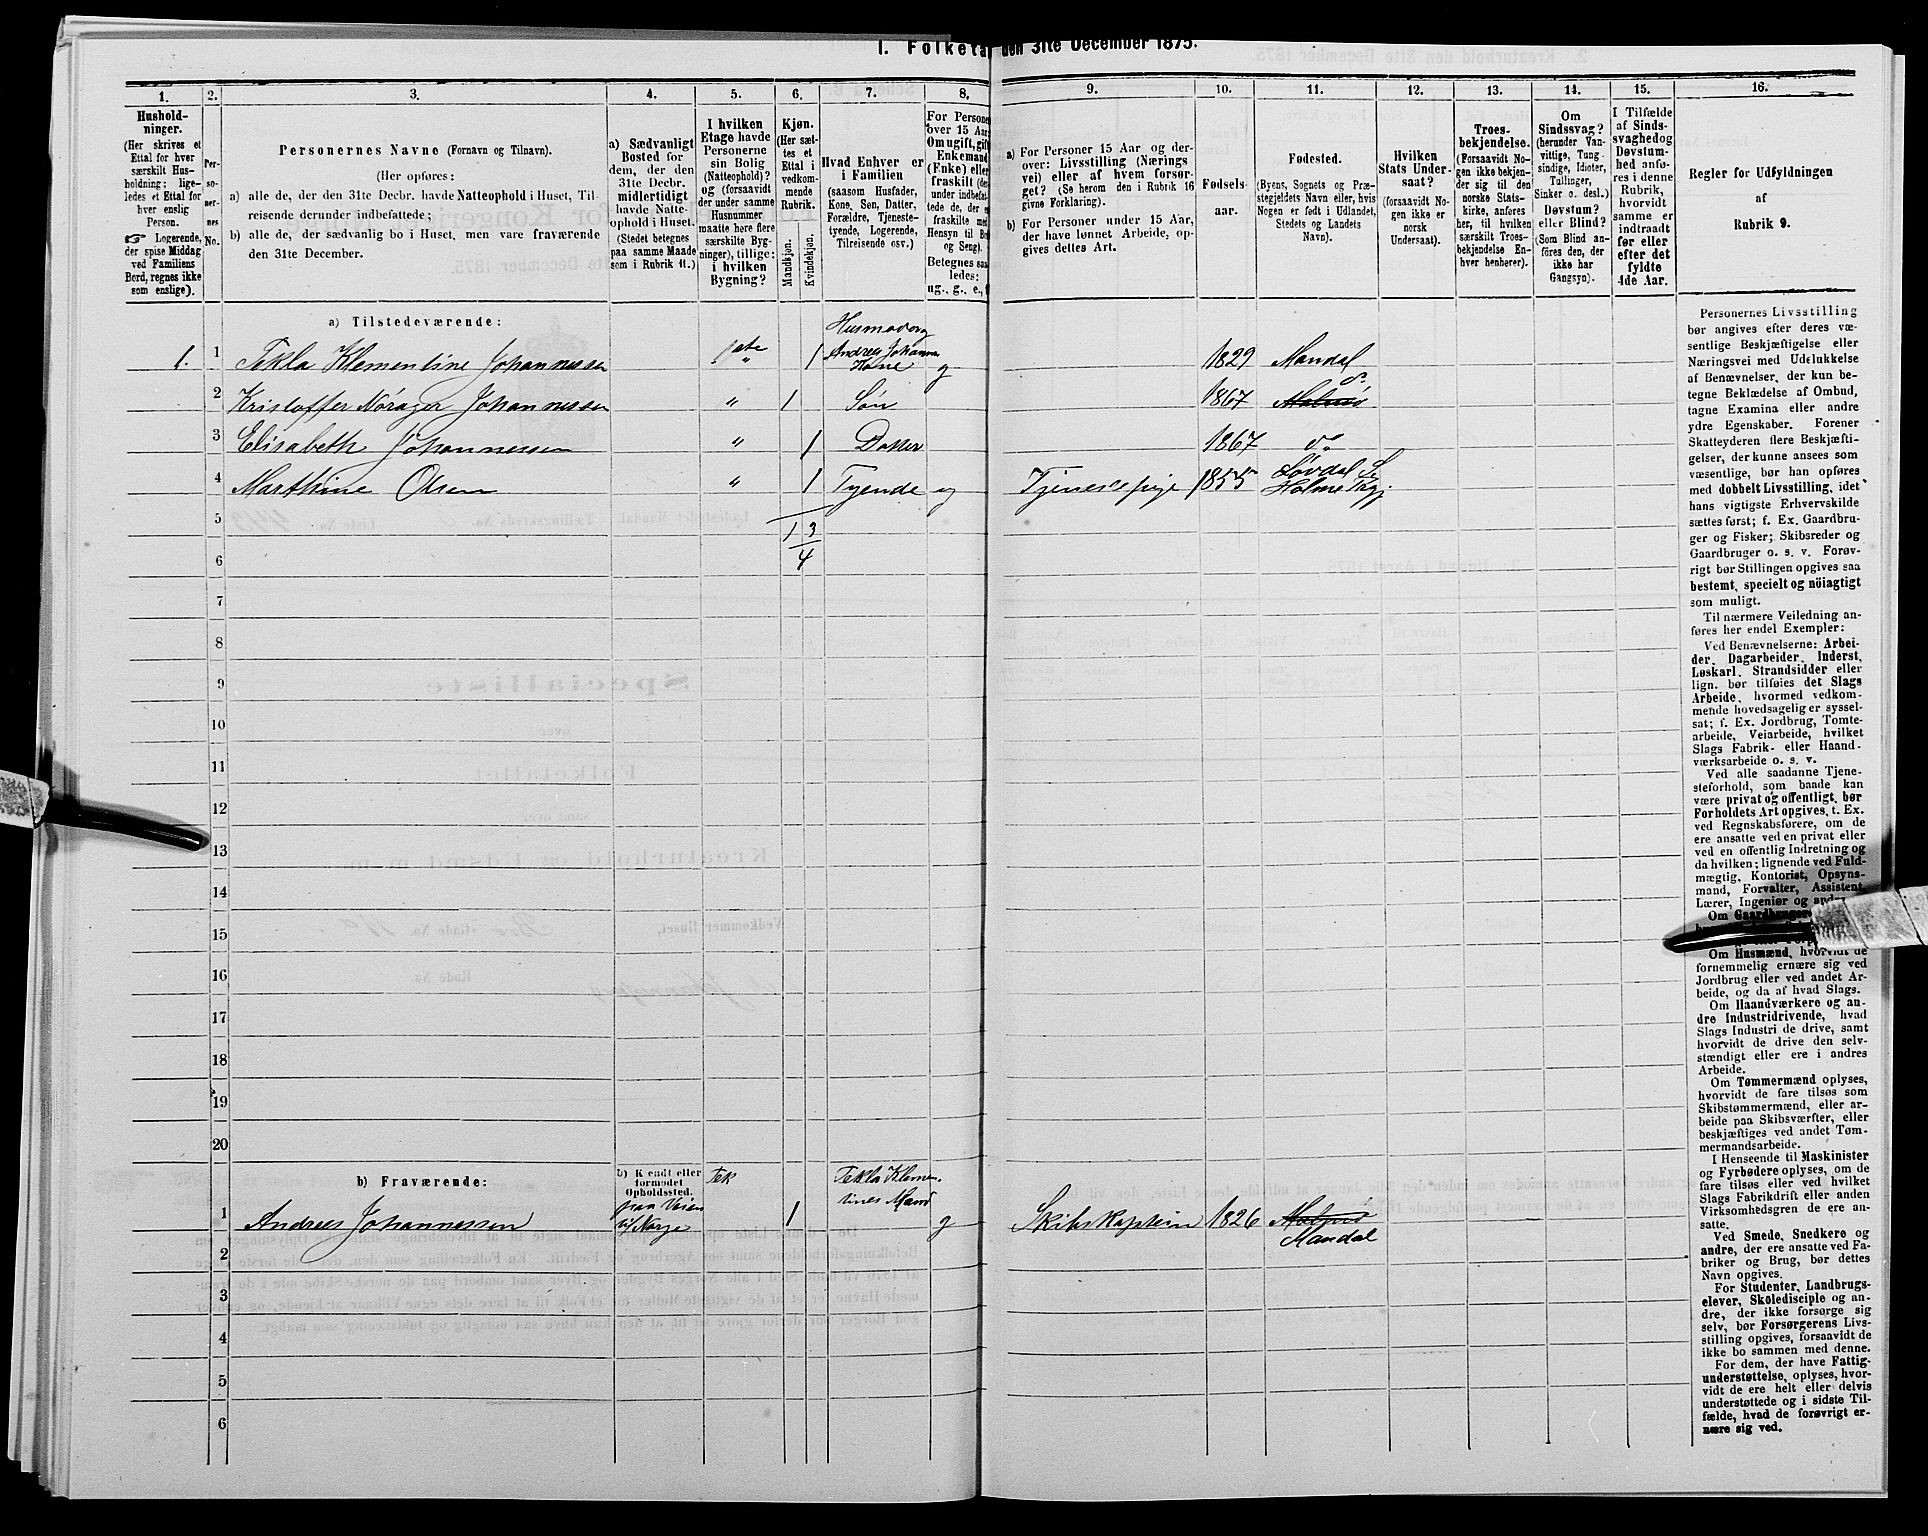 1. Folketa den 31te December 1875.
1. 2. 3. 4. 5. 6. 7. 8. 9. 10. 11. 12. 13. 14. 15. 16.
Hushold-
ninger.
(Her skrives et
Ettal for hver
særskilt Hus-
holdning; lige-
ledes et Ettal for
hver enslig
Person.
☞ Logerende,
der spise Middag
ved Familiens
Bord, regnes ikke
som enslige).
Per-
so-
ner-
nes
No.
Personernes Navne (Fornavn og Tilnavn).
(Her opføres:
a) alle de, der den 31te Decbr. havde Natteophold i Huset, Til-
reisende derunder indbefattede;
b) alle de, der sædvanlig bo i Huset, men vare fraværende
den 31te December.
a) Sædvanligt
Bosted for
dem, der den
31te Decbr.
midlertidigt
havde Natte-
ophold i Huset.
(Stedet betegnes
paa samme Maade
som i Rubrik 11.)
I hvilken
Etage havde
Personerne
sin Bolig
(Natteophold)?
og (forsaavidt
der under samme
Husnummer
maatte høre flere
særskilte Byg-
ninger), tillige:
i hvilken
Bygning?
Kjøn.
(Her sæt-
tes et
Ettal i
vedkom-
mende
Rubrik.
Mandkjøn.
Kvindekjøn.
Hvad Enhver er
i Familien
(saasom Husfader,
Kone, Søn, Datter,
Forældre, Tjeneste-
tyende, Logerende,
Tilreisende osv.)
For Persone
over 15 Aar:
Om ugift, gif
Enkemand
(Enke) eller
fraskilt (de
under indbefat-
tede de, der e
fraskilte med
Hensyn til Bo
og Seng).
Betegnes saa
ledes:
ug., g., e., f
a) For Personer 15 Aar og der-
over: Livsstilling (Nærings
vei) eller af hvem forsør-
get? (Se herom den i Rubrik 16
givne Forklaring).
b) For Personer under 15 Aar,
der have lønnet Arbeide, op-
gives dettes Art.
Fødsels-
aar.
Fødested.
(Byens, Sognets og Præ-
stegjeldets Navn eller, hvis
Nogen er født i Udlandet,
Stedets og Landets
Navn).
Hvilken
Stats Under-
saat?
(forsaavidt No-
gen ikke er
norsk
Undersaat).
Troes-
bekjendelse.
(Forsaavidt No-
gen ikke bekjen-
der sig til den
norske Stats-
kirke, anføres
her, til hvilken
særskilt Troes-
bekjendelse En-
hver henhører).
Om
Sindssvag?
(herunder Van-
vittige, Tung-
sindige, Idioter,
Tullinger,
Sinker o. desl.)
Døvstum?
eller Blind?
(Som Blind an-
føres den, der
ikke har
Gangsyn).
I Tilfælde
af Sinds-
svaghedog
Døvstum-
hed anfø-
res i denne
Rubrik,
hvorvidt
samme er
indtraadt
før eller
efter det
fyldte
4de Aar.
Regler for Udfyldningen
af
Rubrik 9.
a) Tilstedeværende:
Husmoder og
1. 1 Tekla Klementine Johannessen 1ste " 1 Andrees Johanne Kone g 1829 Mandal
2 Kristoffer Nørager Johannessen " 1 Søn 1867 Malmø do
3 Elisabeth Johannessen " 1 Datter 1867 do
4 Marthine Olsen " 1 Tyende ug Tjenestepige 1855 Løvdal S. Holme Prgj
5 1 3
6 4
7
8
9
10
11
12
13
14
15
16
17
18
19
20
b) Fraværende:
b) Kendt eller
formodet
Opholdssted.
Tek
1 Andrees Johannessen paa Veien til Norge 1 Tekla Klemen- tines Mand g Skibskaptein 1826 Malmø Mandal
2
3
4
5
6
Personernes Livsstilling
bør angives efter deres væ-
sentlige Beskjæftigelse eller
Næringsvei med Udelukkelse
af Benævnelser, der kun be-
tegne Beklædelse af Ombud,
tagne Examina eller andre
ydre Egenskaber. Forener
Skatteyderen flere Beskjæfti-
gelser, der kunne ansees som
væsentlige, bør han opføres
med dobbelt Livsstilling, idet
hans vigtigste Erhvervskilde
sættes først; f. Ex. Gaardbru-
ger og Fisker; Skibsreder og
Gaardbruger o. s. v. Forøv-
rigt bør Stillingen opgives saa
bestemt, specielt og nöiagtigt
som muligt.
Til nærmere Veiledning an-
føres her endel Exempler:
Ved Benævnelserne: Arbei-
der, Dagarbeider, Inderst,
Løskarl, Strandsidder eller
lign. bør tilføies det Slags
Arbeide, hvormed vedkom-
mende hovedsagelig er syssel-
sat; f. Ex. Jordbrug, Tomte-
arbeide, Veiarbeide, hvilket
Slags Fabrik- eller Haand-
værksarbeide o. s. v.
Ved alle saadanne Tjene-
steforhold, som baade kan
være privat og offentligt, bør
Forholdets Art opgives, t. Ex.
ved Regnskabsførere, om de
ere ansatte ved en privat eller
ved en offentlig Indretning og
da hvilken; lignende ved Fuld-
mægtig, Kontorist, Opsyns-
mand, Forvalter, Assistent,
Lærer, Ingeniør og andre.
Om Gaardbrugere
Om Husmænd, hvorvidt de
fornemmelig ernære sig ved
Jordbrug eller ved andet Ar-
beide, og da af hvad Slags.
Om Haandværkere og an-
dre Industridrivende, hvad
Slags Industri de drive, samt
hvorvidt de drive den selv-
stændigt eller ere i andres
Arbeide.
Om Tømmermænd oplyses,
hvorvidt de fare tilsøs som
Skibstømmermænd, eller ar-
beide paa Skibsværfter, eller
beskjæftiges ved andet Tøm-
mermandsarbeide.
I Henseende til Maskinister
og Fyrbødere oplyses, om de
fare tilsøs eller ved hvilket
Slags Fabrikdrift eller anden
Virksomhedsgren de ere an-
satte.
Ved Smede, Snedkere og
andre, der ere ansatte ved Fa-
briker og Brug, bør dettes
Navn opgives.
For Studenter, Landbrugs-
elever, Skoledisciple og an-
dre, der ikke forsørge sig
selv, bør Forsørgerens Livs-
stilling opgives, forsaavidt de
ikke bo sammen med denne.
For dem, der have Fattig-
understøttelse, oplyses, hvor-
vidt de ere helt eller delvis
understøttede og i sidste Til-
fælde, hvad de forøvrigt er-
nære sig ved.